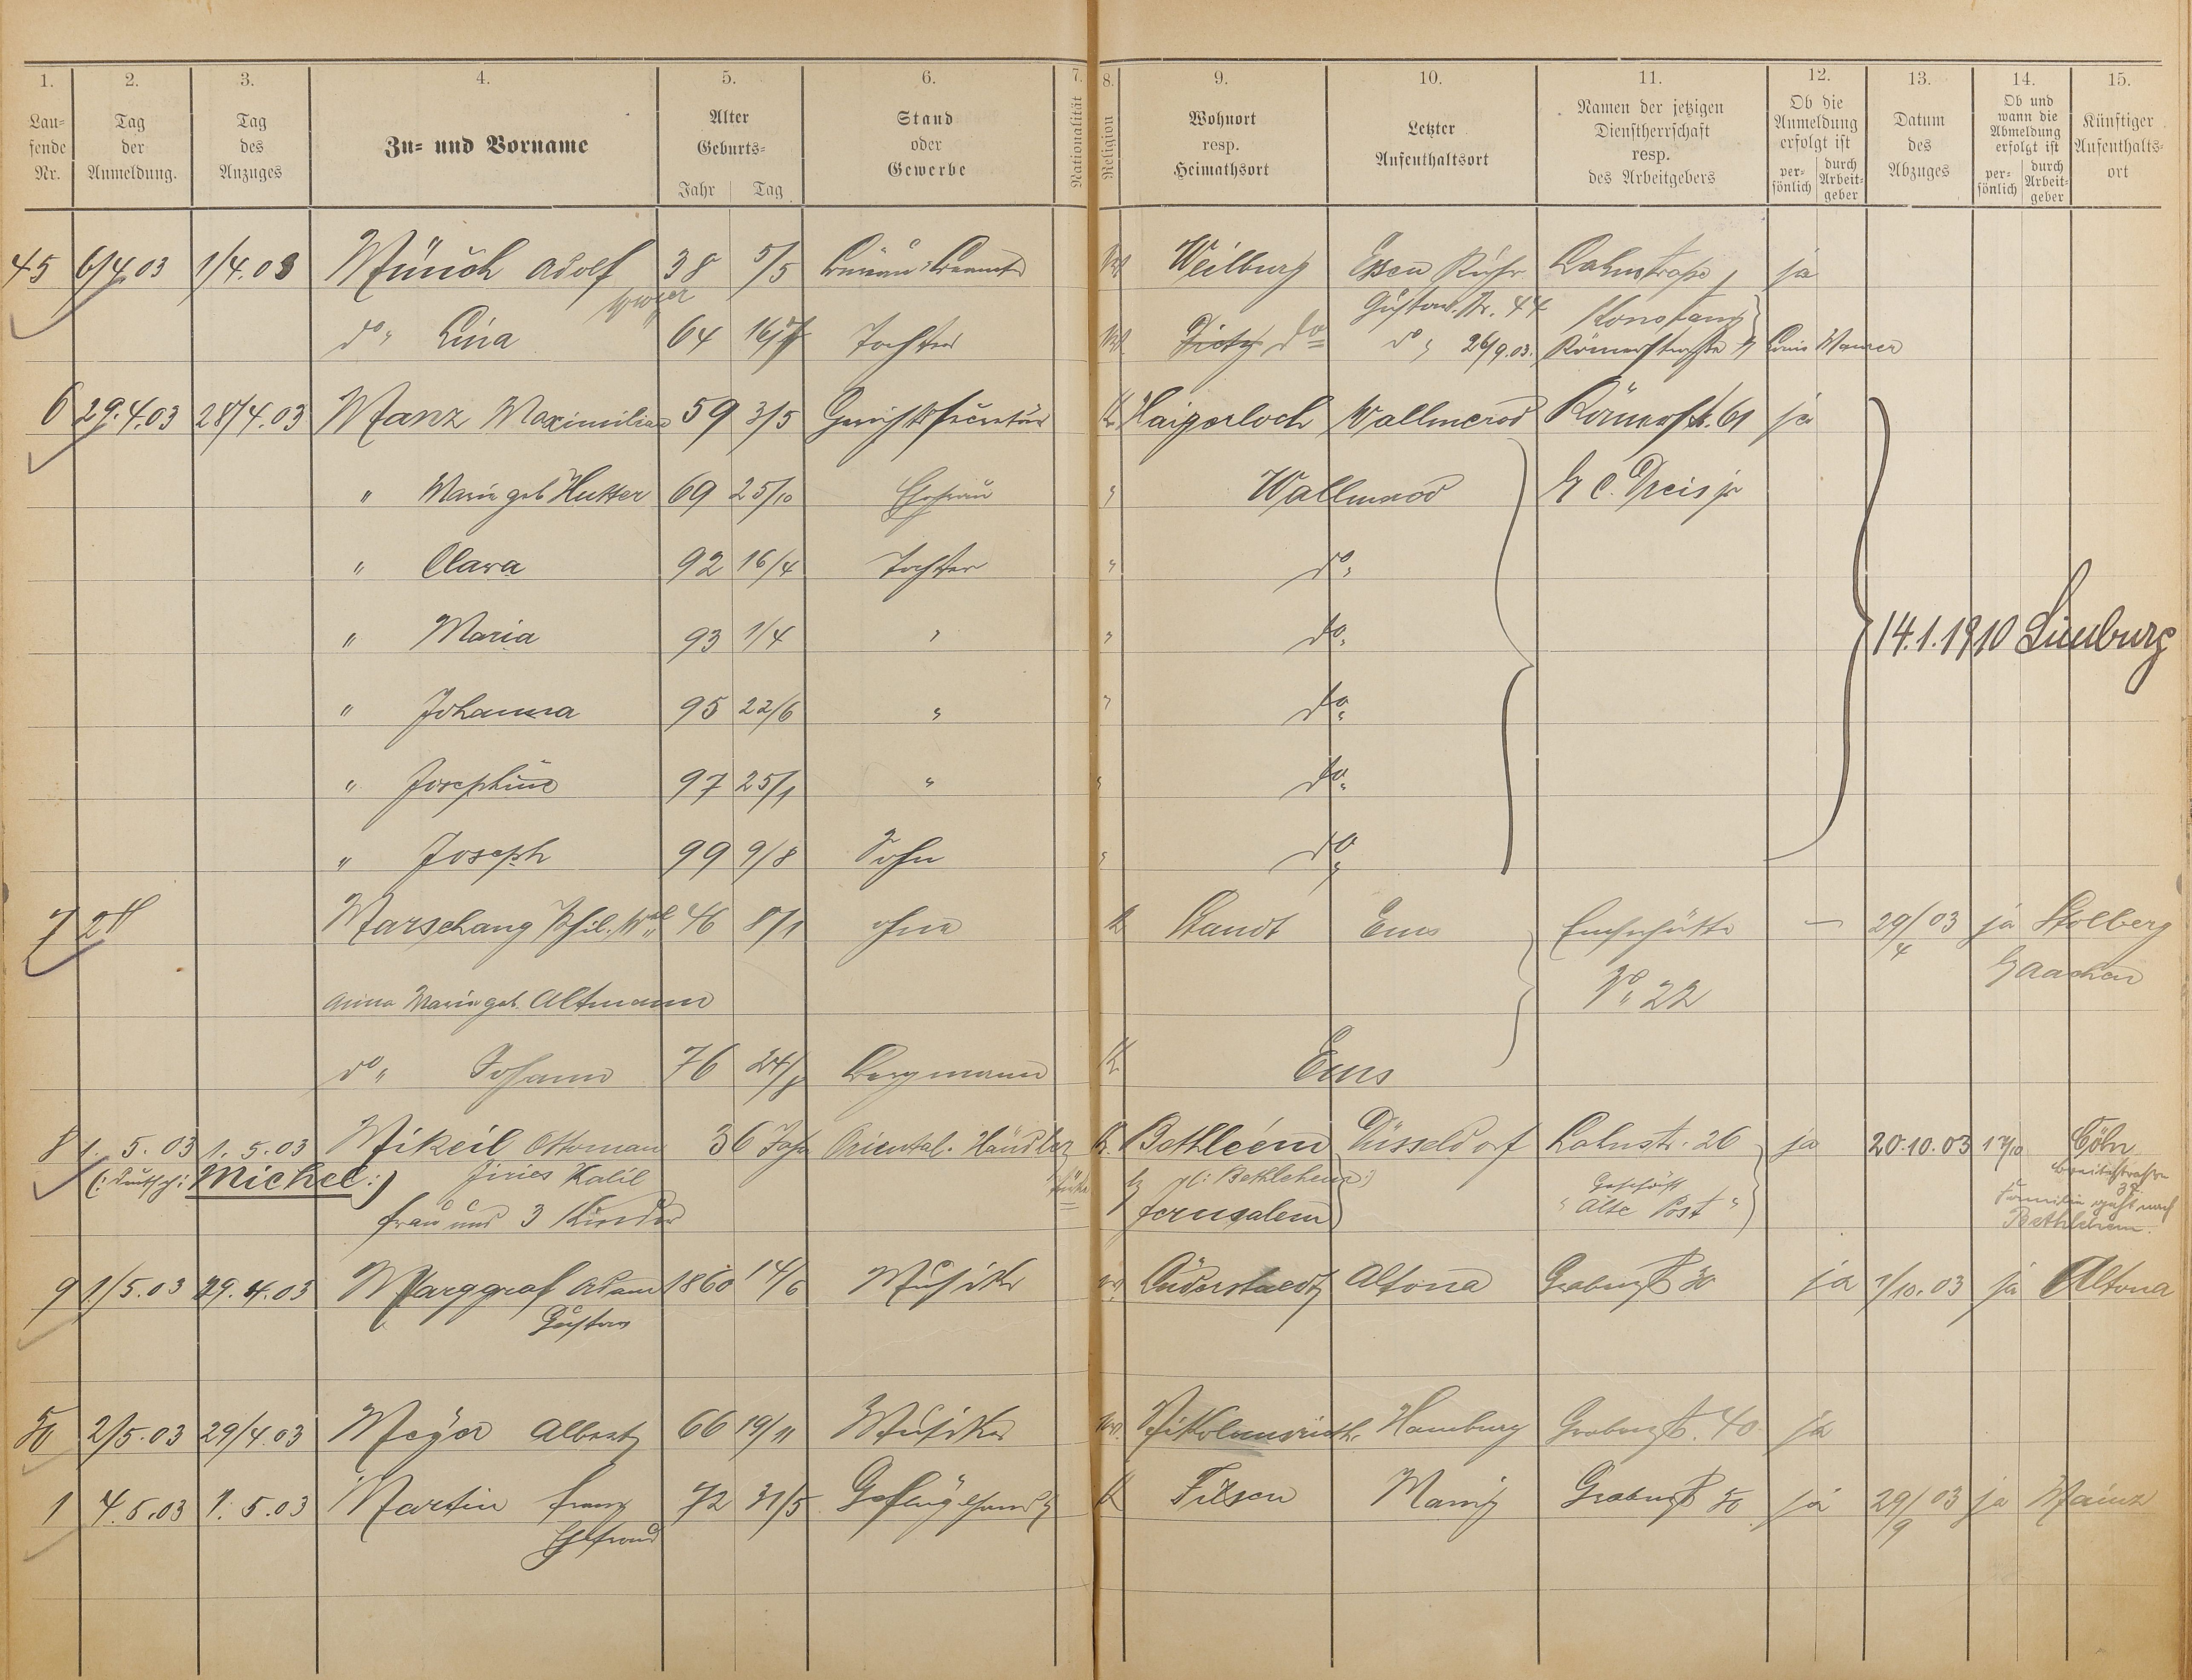 1. 2. 3. 4. 5. 6. 7. 8. 9. 10. 11. 12. 13. 14. 15.
Lau=
fende
Nr.
Tag
der
Anmeldung.
Tag
des
Anzuges
Zu= und Vorname
Alter
Geburts=
Jahr Tag
Stand
oder
Gewerbe
Nationalität
Religion
Wohnort
resp.
Heimathsort
Letzter
Aufenthaltsort
Namen der jetzigen
Dienstherrschaft
resp.
des Arbeitgebers
Ob die
Anmeldung
erfolgt ist
per=
sönlich
durch
Arbeit=
geber
Datum
des
Abzuges
Ob und
wann die
Abmeldung
erfolgt ist
per=
sönlich
durch
Arbeit=
geber
Künftiger
Aufenthalts=
ort
45 6/4.03 1/4.03 Münch Adolf 38 5/5 Weilburg Essen Ruhr Lahnstraße ja
Gustavstr. 44
do Lina 64 Tochter Dietz do do 26/9.03. Römerstraße Louis Maurer
6 29.4.03 28/4.03 Manz Maximilian 59 3/5 Gerichtssecretär K. Haigerloch Wallmerod Römerstr. 61 ja
" Marie geb Hutter 69 25/10 Ehefrau " Wallmerod
" Clara 92 16/4 Tochter " do
" Maria 93 1/4 " " do
" Johanna 95 22/6 " " do
14.1.1910 Limburg
" Josephine 97 25/1 " " do
" Joseph 99 9/8 Sohn " do
7 Marschang Phil. 46 8/1 ohne K Staudt Ems Emserhütte — 29/4 03 ja Stolberg
b/ Aachen
Anna Marie geb. Altmann No 22
do Johann 76 24/8 Bergmann K. Ems
8 1. 5. 03 1. 5. 03 Mikeil Ottoman 36 Jahr Oriental. Händler K. Bethleém Düsseldorf Lahnstr. 26 ja 20.10.03 Cöln
(: deutsch: Michel :) Jiries Kalil b/ (: Bethlehem :) Geschäft Breitestraße
Frau und 3 Kinder Jerusalem "Alte Post" Familie geht nach
Bethlehem.
9 1/5.03 29.4.03 Marggraf Adam 1860 14/6 Musiker Altona Grabenstr 30 ja 1/10.03 ja Altona
Gustav
50 2/5.03 29/4.03 Meyer Albert 66 19/11 Musiker Hamburg Grabenstr. 40 ja
1 4.5.03 1. 5.03 Martin Franz 72 31/5 K Filsen Mainz Grabenstr 50 ja 29/9 03 ja Mainz
Ehefrau